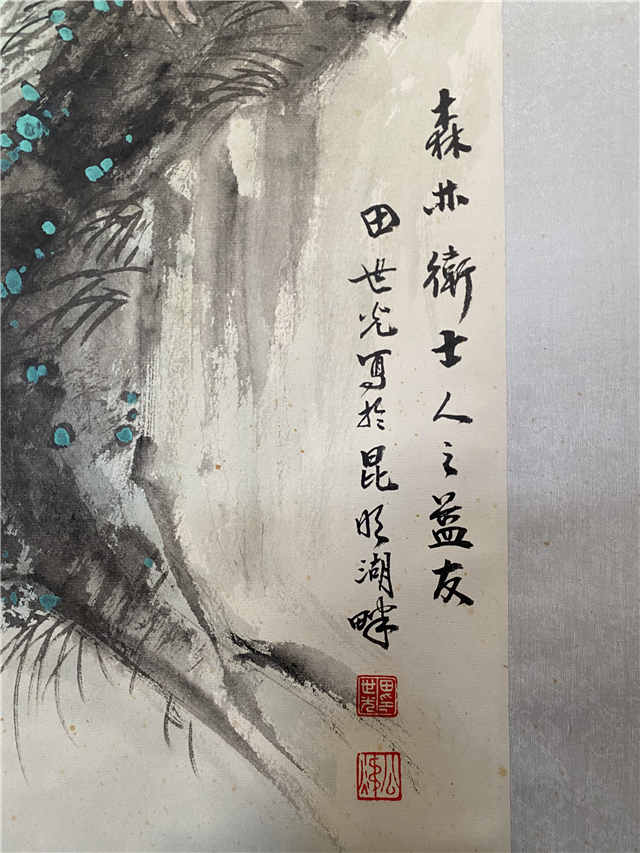 森林衛士人之益友
田世光寫於昆明湖畔
田世光印
公煒